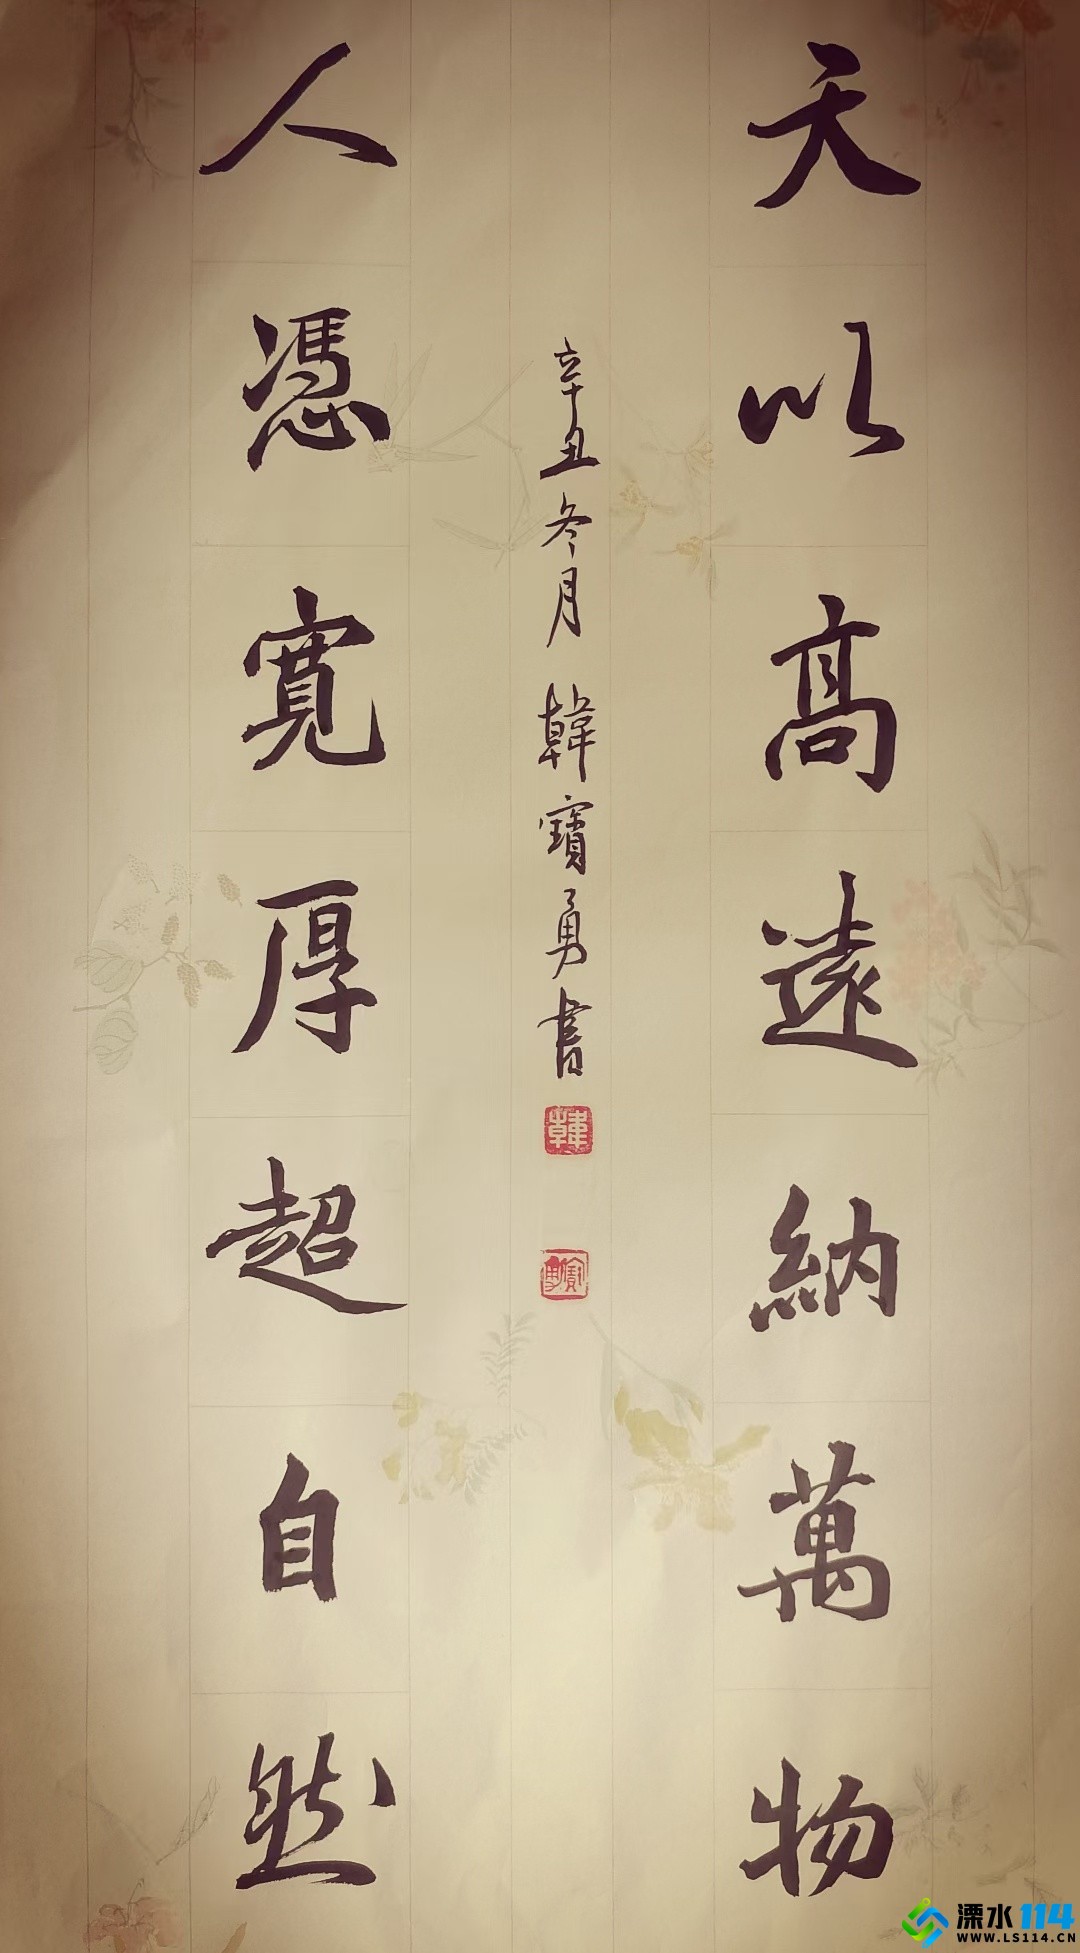 天以高遠納萬物
辛丑冬月 韓寶勇書
韓
人憑寬厚超自然
溧水114
WWW.LS114.CN